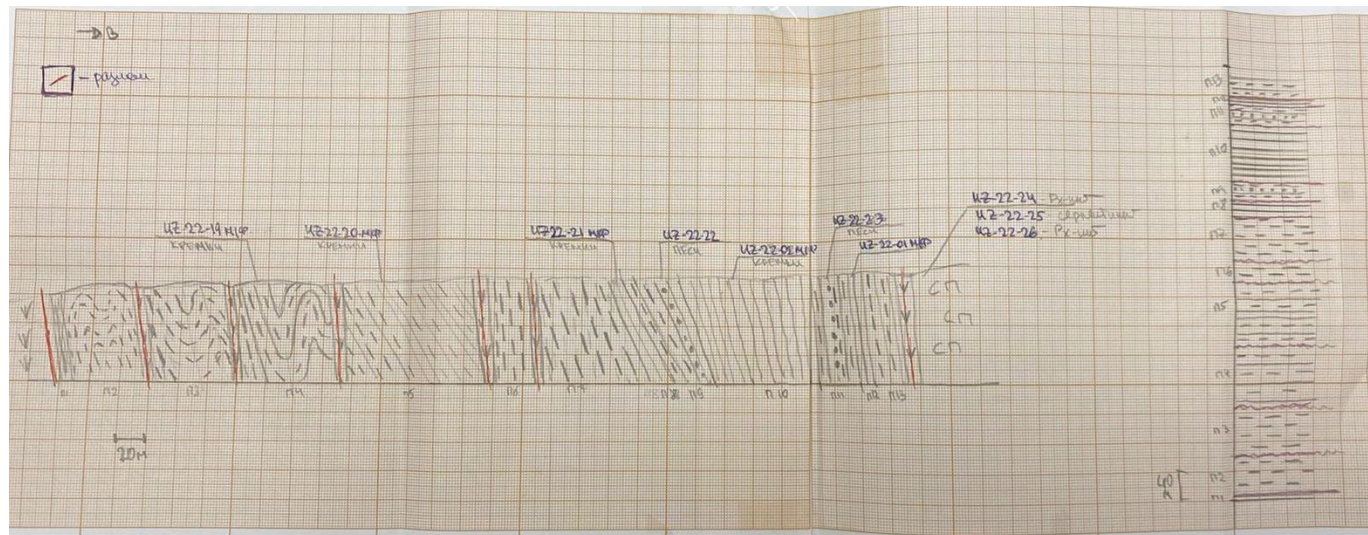 → В
- разлом
UZ-22-19 М/Ф
КРЕМНИ
UZ-22-20 М/Ф
КРЕМНИ
UZ-22-21 М/Ф
КРЕМНИ
UZ-22-22
ПЕСЧ
UZ-22-02 М/Ф
КРЕМНИ
UZ-22-23
ПЕСЧ
UZ-22-01 М/Ф
UZ-22-24 -
UZ-22-25 -
UZ-22-26 -
СП
СП
СП
П1
П2
П3
П4
П5
П6
П7
П8
П9
П10
П11
П12
П13
20м
П13
П12
П11
П10
П9
П8
П7
П6
П5
П4
П3
П2
П1
40
м